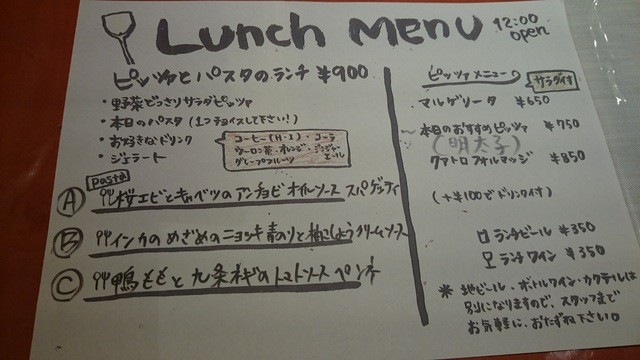 Lunch Menu
12:00 open
ピッツァとパスタのランチ ¥900
・野菜どっさりサラダピッツァ
・本日のパスタ(1つチョイスして下さい!)
・お好きなドリンク
コーヒー(H・I)・コーラ
ウーロン茶・オレンジ・ジンジャーエール
グレープフルーツ
・ジェラート
Pasta
Ⓐ 桜エビとキャベツのアンチョビオイルソース スパゲッティ
Ⓑ インカのめざめのニョッキ 青のりと柚こしょうクリームソース
Ⓒ 鴨ももと九条ネギのトマトソース ペンネ
ピッツァメニュー
サラダ付
マルゲリータ ¥650
本日のおすすめピッツァ ¥750
(明太子)
クァトロフォルマッジ ¥850
(+¥100でドリンク付)
ランチビール ¥350
ランチワイン ¥350
* 地ビール、ボトルワイン・カクテルは
別になりますので、スタッフまで
お気軽に、おたずね下さい。